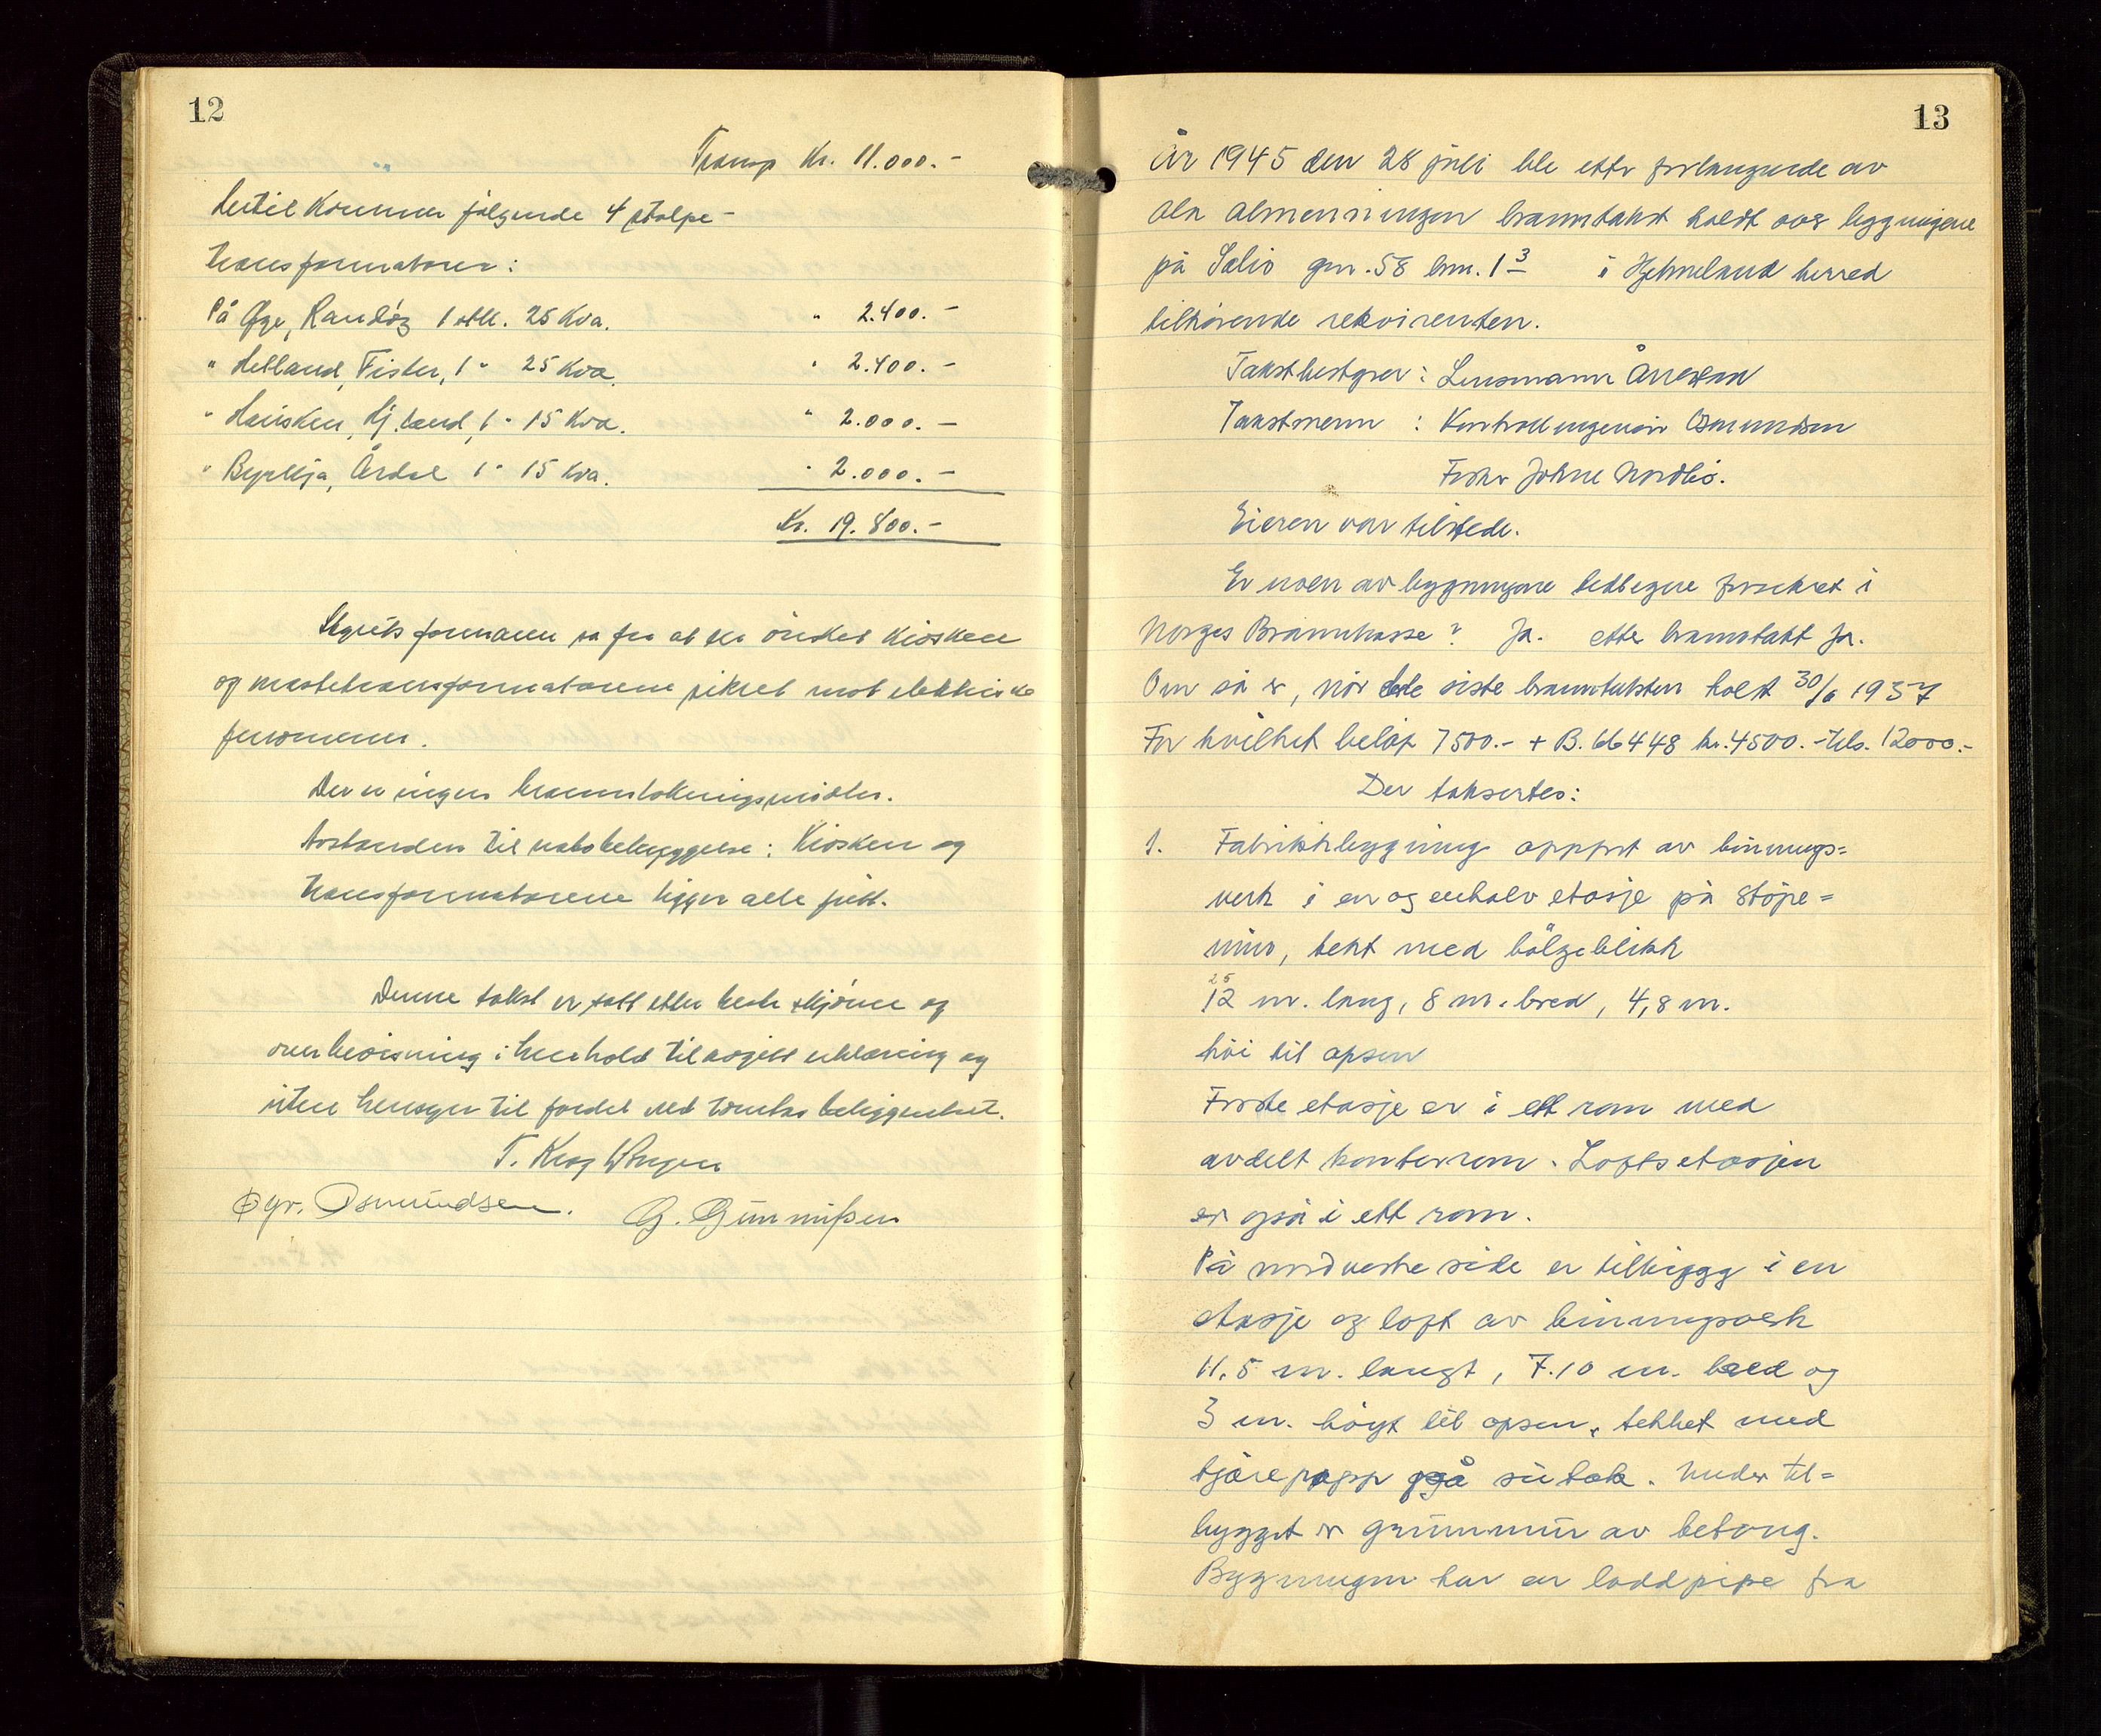 12
Transp Kr. 11.000.-
Hertil kommer følgende 4 stolpe-
transformatorer:
På Øye, Randøy 1 stk. 25 Kva. " 2.400.-
" Helland, Fister, 1 " 25 Kva. " 2.400.-
" Hausken, Hj.land, 1 " 15 Kva. " 2.000.-
" Byrkja, Årdal 1 " 15 Kva. " 2.000.-
Kr. 19.800.-
formann sa fra at der ønskes kiosken
og mastetransformatorene sikret mot elektriske
fenomener.
Der er ingen brannslokningsmidler.
Avstanden til nabobebyggelse: Kiosken og
transformatorene ligger alle fritt.
Denne takst er satt etter beste skjønn og
overbevisning i henhold til avgitt erklæring og
uten hensyn til fordel ved tomtens beliggenhet.
T. Krag
Ogv. Osmundsen. G. Gunnufsen
13
År 1945 den 28 juli ble etter forlangende av
Ola Almenningen branntakst holdt over bygningene
på gnr. 58 bnr. 13 i Hjelmeland herred
tilhørende rekvirenten.
Takstbestyrer: Lensmann
Takstmenn : Kontrollingeniør Osmundsen
Johne Nordbø.
Eieren var tilstede.
Er noen av bygningene tidligere forsikret i
Norges Brannkasse? Ja. etter branntakst Ja.
Om så er, når ble siste branntaksten holdt 30/6 1937
For hvilket beløp 7500.- + B. 66448 kr. 4500.- tils. 12000.-
Der taksertes:
1. Fabrikkbygning oppført av binnings=
verk i en og enhalv etasje på støpe=
mur, tekt med bølgeblikk
25
12 m. lang, 8 m. bred, 4,8 m.
høi til opsen
Første etasje er i ett rom med
avdelt kontorrom. Loftsetasjen
er også i ett rom.
På nordvestre side er tilbygg i en
etasje og loft av binningsverk
11.5 m. langt, 7.10 m. bred og
3 m. høgt til opsen, tekket med
tjærepapp på sutak. Under til=
bygget er grunnmur av betong.
Bygningen har en loddpipe fra